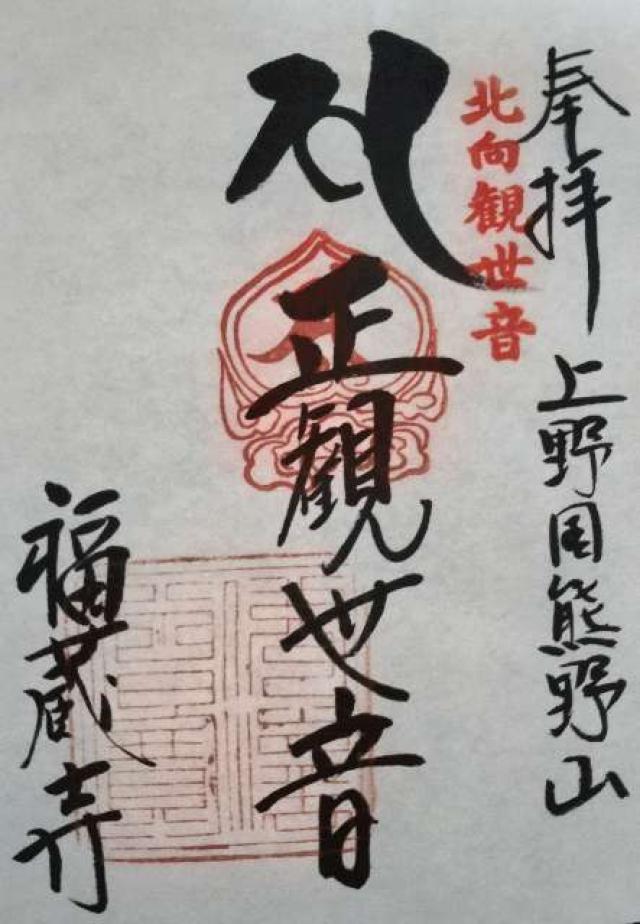 奉拝
上野国熊野山
北向観世音
正観世音
福蔵寺